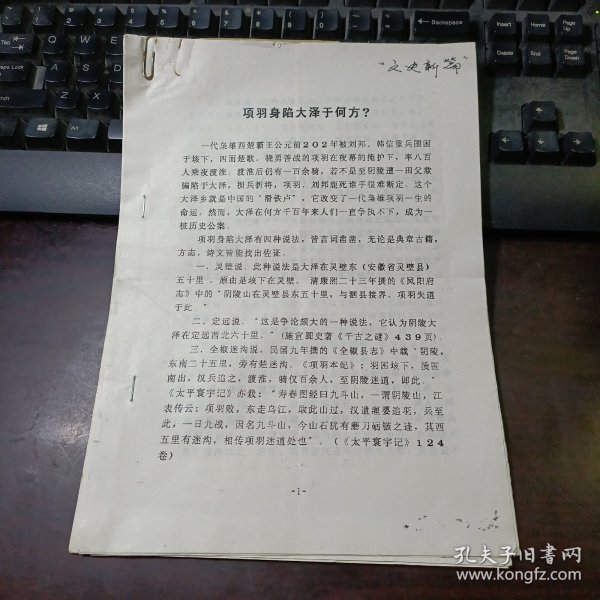 "文史新篇"
项羽身陷大泽于何方？
一代枭雄西楚霸王公元前２０２年被刘邦、韩信重兵围困
于垓下，四面楚歌。骁勇善战的项羽在夜幕的掩护下，率八百
人乘夜渡淮。渡淮后仍有一百余骑，若不是至阴陵遭一田父欺
骗陷于大泽，损兵折将，项羽、刘邦鹿死谁手很难断定。这个
大泽乡就是中国的"滑铁卢"，它改变了一代枭雄项羽一生的
命运。然而，大泽在何方千百年来人们一直争执不下，成为一
桩历史公案。
项羽身陷大泽有四种说法，皆言词凿凿，无论是典章古籍，
方志、诗文皆能找出佐证。
一、灵壁说。此种说法是大泽在灵壁东（安徽省灵壁县）
五十里。原由是垓下在灵壁。清康熙二十三年撰的《凤阳府
志》中的"阴陵山在灵璧县东五十里，与泗县接界。项羽失道
于此"
二、定远说。"这是争论颇大的一种说法，它认为阴陵大
泽在定远西北六十里。"（施宣圆史著《千古之谜》４３９页）
三、全椒迷沟说。民国九年撰的《全椒县志》中载"阴陵，
东南二十五里，旁有楚迷沟。《项羽本纪》：羽困垓下，溃围
南出，汉兵追之，渡淮，骑仅百余人，至阴陵迷道，即此。"
《太平寰宇记》亦载："寿春图经曰九斗山，一谓阴陵山，江
表传云：项羽败，东走乌江，取此山过，汉遣灌婴追羽，兵至
此，一日九战，因名九斗山，今山石犹有磨刀砺镞之迹，其西
五里有迷沟，相传项羽迷道处也"。（《太平寰宇记》１２４
卷）
-1-
孔夫子旧书网
www.kongfz.com